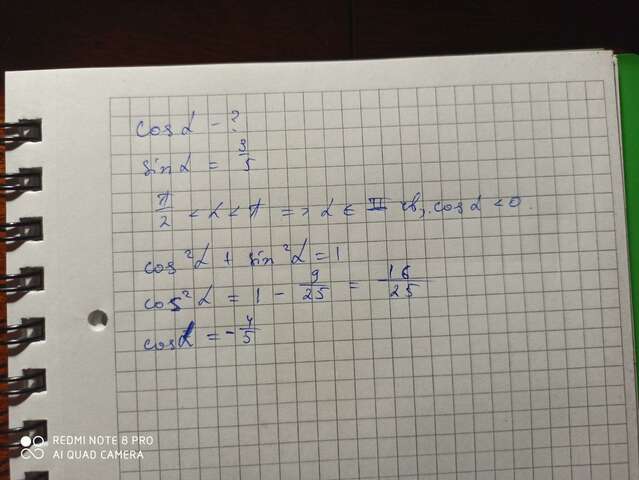 cos α - ?
sin α = 3/5
π/2 < α < π => α ∈ II чв, cos α < 0.
cos²α + sin²α = 1
cos²α = 1 - 9/25 = 16/25
cos α = - 4/5
REDMI NOTE 8 PRO
AI QUAD CAMERA